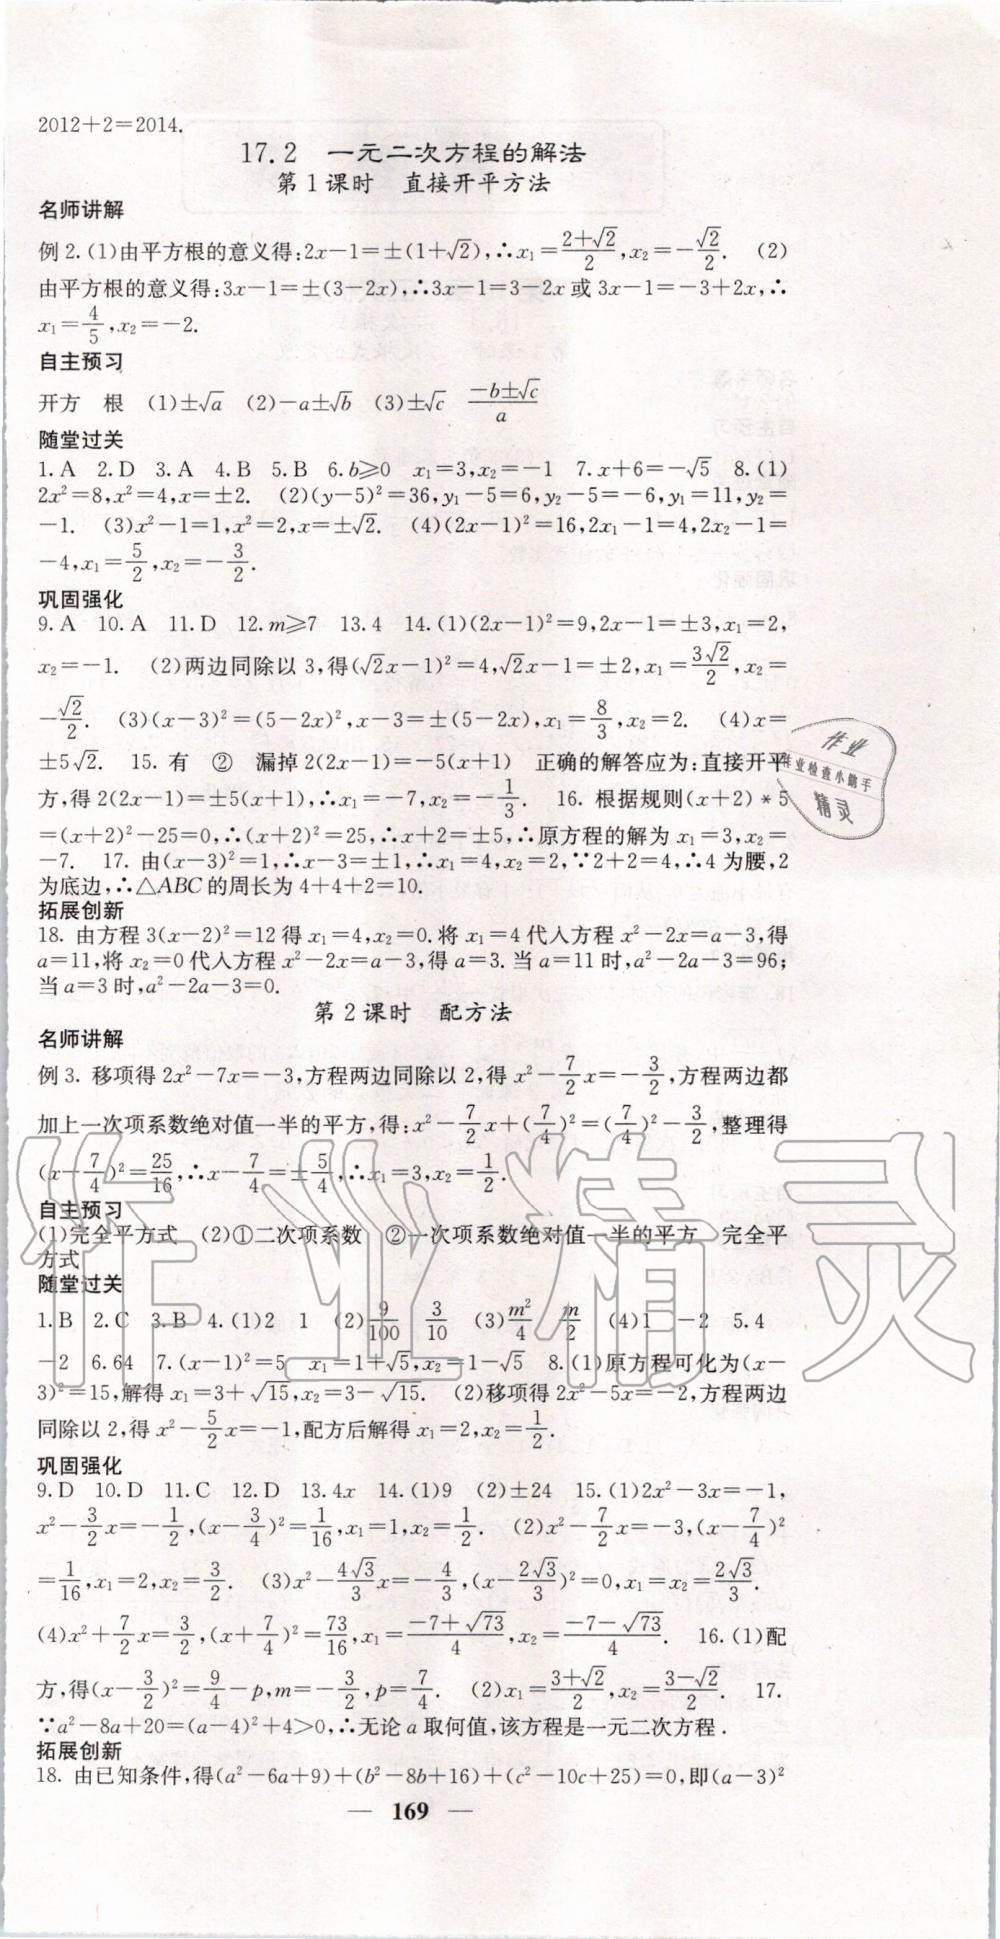 2012+2=2014.
17.2 一元二次方程的解法
第1课时 直接开平方法
名师讲解
例2.(1)由平方根的意义得:2x-1=±(1+√2),∴x₁=(2+√2)/2,x₂=-√2/2. (2)
由平方根的意义得:3x-1=±(3-2x),∴3x-1=3-2x或3x-1=-3+2x,∴
x₁=4/5,x₂=-2.
自主预习
开方 根 (1)±√a (2)-a±√b (3)±√c (-b±√c)/a
随堂过关
1.A 2.D 3.A 4.B 5.B 6.b≥0 x₁=3,x₂=-1 7.x+6=-√5 8.(1)
2x²=8,x²=4,x=±2. (2)(y-5)²=36,y₁-5=6,y₂-5=-6,y₁=11,y₂=
-1. (3)x²-1=1,x²=2,x=±√2. (4)(2x-1)²=16,2x₁-1=4,2x₂-1=
-4,x₁=5/2,x₂=-3/2.
巩固强化
9.A 10.A 11.D 12.m≥7 13.4 14.(1)(2x-1)²=9,2x-1=±3,x₁=2,
x₂=-1. (2)两边同除以3,得(√2x-1)²=4,√2x-1=±2,x₁=3√2/2,x₂=
-√2/2. (3)(x-3)²=(5-2x)²,x-3=±(5-2x),x₁=8/3,x₂=2. (4)x=
±5√2. 15.有 ② 漏掉2(2x-1)=-5(x+1) 正确的解答应为:直接开平
方,得2(2x-1)=±5(x+1),∴x₁=-7,x₂=-1/3. 16.根据规则(x+2)*5
=(x+2)²-25=0,∴(x+2)²=25,∴x+2=±5,∴原方程的解为x₁=3,x₂=
-7. 17.由(x-3)²=1,∴x-3=±1,∴x₁=4,x₂=2,∵2+2=4,∴4为腰,2
为底边,∴△ABC的周长为4+4+2=10.
拓展创新
18.由方程3(x-2)²=12得x₁=4,x₂=0.将x₁=4代入方程x²-2x=a-3,得
a=11,将x₂=0代入方程x²-2x=a-3,得a=3.当a=11时,a²-2a-3=96;
当a=3时,a²-2a-3=0.
第2课时 配方法
名师讲解
例3.移项得2x²-7x=-3,方程两边同除以2,得x²-7/2x=-3/2,方程两边都
加上一次项系数绝对值一半的平方,得:x²-7/2x+(7/4)²=(7/4)²-3/2,整理得
(x-7/4)²=25/16,∴x-7/4=±5/4,∴x₁=3,x₂=1/2.
自主预习
(1)完全平方式 (2)①二次项系数 ②一次项系数绝对值一半的平方 完全平
方式
随堂过关
1.B 2.C 3.B 4.(1)2 1 (2)9/100 3/10 (3)m²/4 m/2 (4)1 -2 5.4
-2 6.64 7.(x-1)²=5 x₁=1+√5,x₂=1-√5 8.(1)原方程可化为(x-
3)²=15,解得x₁=3+√15,x₂=3-√15. (2)移项得2x²-5x=-2,方程两边
同除以2,得x²-5/2x=-1,配方后解得x₁=2,x₂=1/2.
巩固强化
9.D 10.D 11.C 12.D 13.4x 14.(1)9 (2)±24 15.(1)2x²-3x=-1,
x²-3/2x=-1/2,(x-3/4)²=1/16,x₁=1,x₂=1/2. (2)x²-7/2x=-3,(x-7/4)²
=1/16,x₁=2,x₂=3/2. (3)x²-4√3/3x=-4/3,(x-2√3/3)²=0,x₁=x₂=2√3/3.
(4)x²+7/2x=3/2,(x+7/4)²=73/16,x₁=(-7+√73)/4,x₂=(-7-√73)/4. 16.(1)配
方,得(x-3/2)²=9/4-p,m=-3/2,p=7/4. (2)x₁=(3+√2)/2,x₂=(3-√2)/2. 17.
∵a²-8a+20=(a-4)²+4>0,∴无论a取何值,该方程是一元二次方程.
拓展创新
18.由已知条件,得(a²-6a+9)+(b²-8b+16)+(c²-10c+25)=0,即(a-3)²
— 169 —
作业
作业检查小助手
精灵
作业精灵